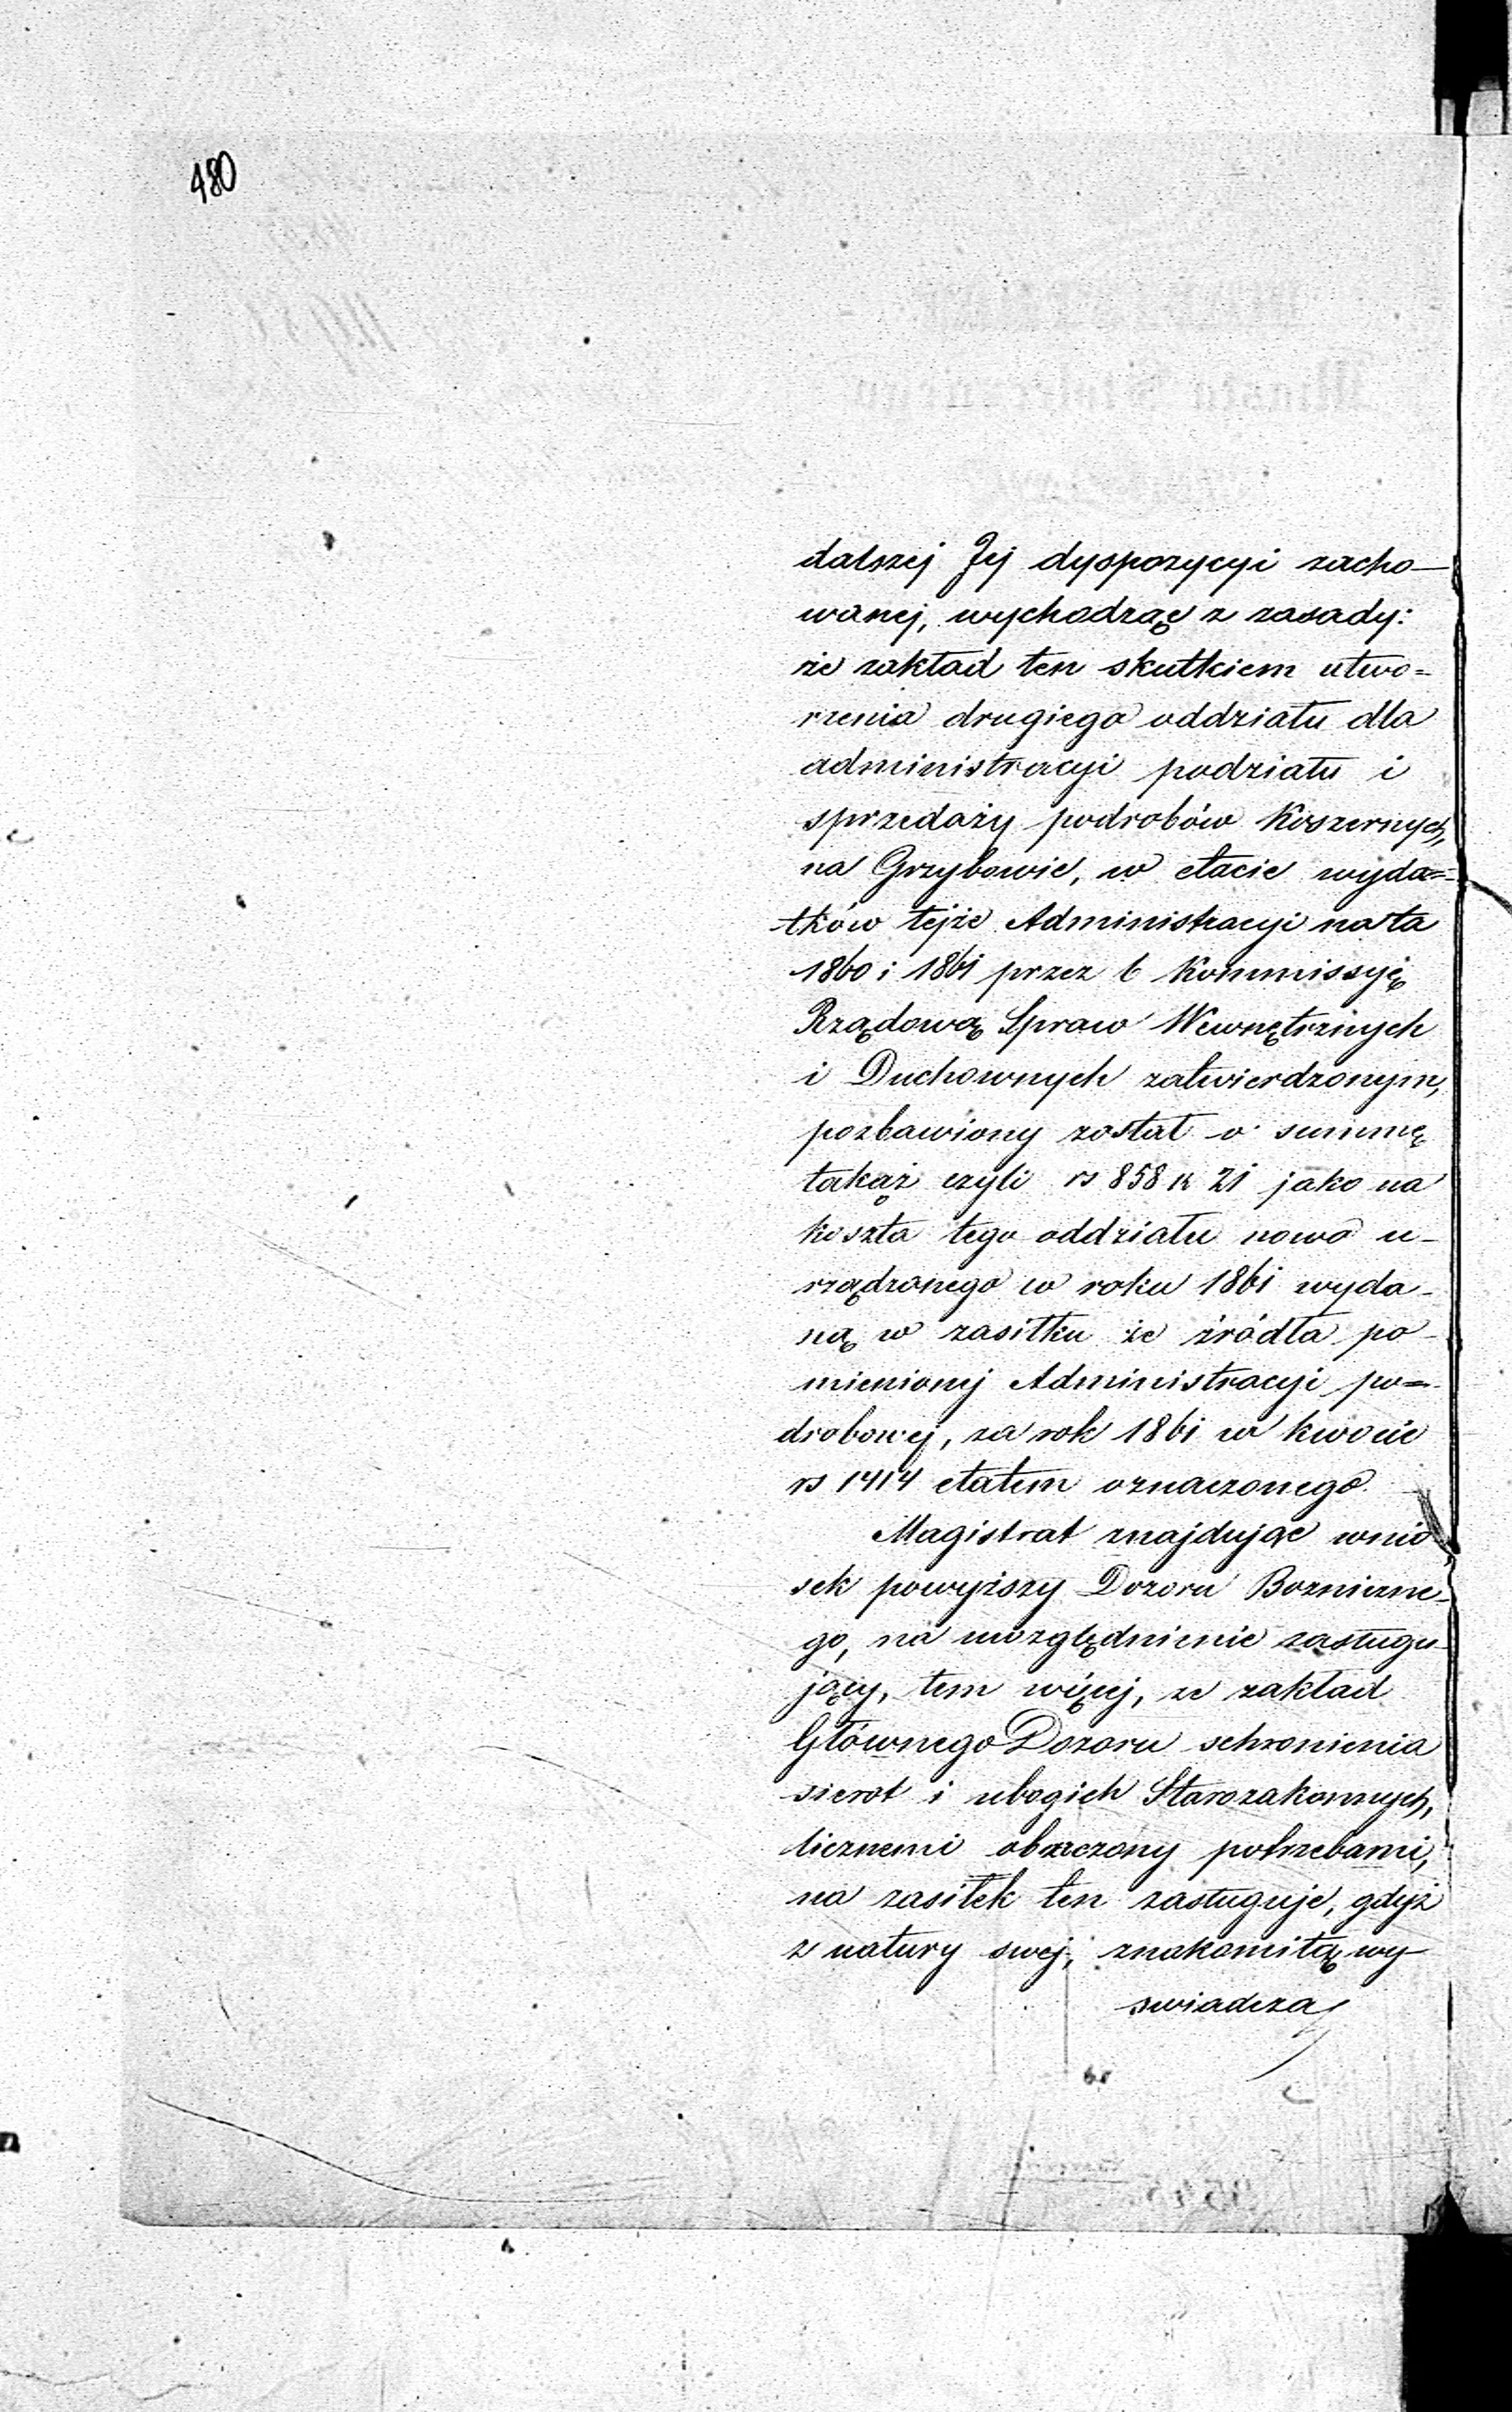 480
dalszej Jej dyspozycyi zacho-
wanej, wychodząc z zasady:
że zakład ten skutkiem utwo=
rzenia drugiego oddziału dla
administracyi podziału i
sprzedaży podrobów Koszernych,
na Grzybowie, w etacie wyda=
tków tejże Administracyi na la
1860 i 1861 przez b Kommissyję
Rządową Spraw Wewnętrznych
i Duchownych zatwierdzonym,
pozbawiony został o summę
takąż czyli rs 858 k 21 jako na
koszta tego oddziału nowo u-
rządzonego w roku 1861 wyda-
ną w zasiłku że źródła po-
mienionej Administracyi po=
drobowej, za rok 1861 w kwocie
rs 1414 etatem oznaczonego.
Magistrat znajdując wnio
sek powyższy Dozoru Bozniczne-
go, na uwzględnienie zasługu-
jący, tem więcej, ze zakład
Głównego Dozoru schronienia
sierot i ubogich Starozakonnych,
licznemi obarczony potrzebami,
na zasiłek ten zasługuje, gdyż
z natury swej, znakomitą wy-
swiadcza